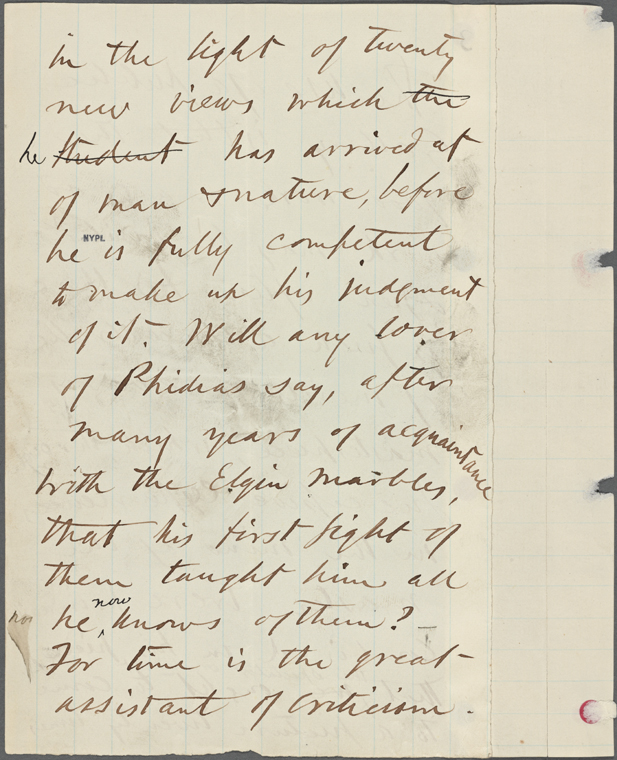 in the light of twenty
new views which the
he student has arrived at
of man & nature, before
NYPL
he is fully competent
to make up his judgment
of it. Will any lover
of Phidias say, after
many years of acquaintance
with the Elgin marbles,
that his first sight of
them taught him all
he now knows of them?
For time is the great
assistant of criticism.